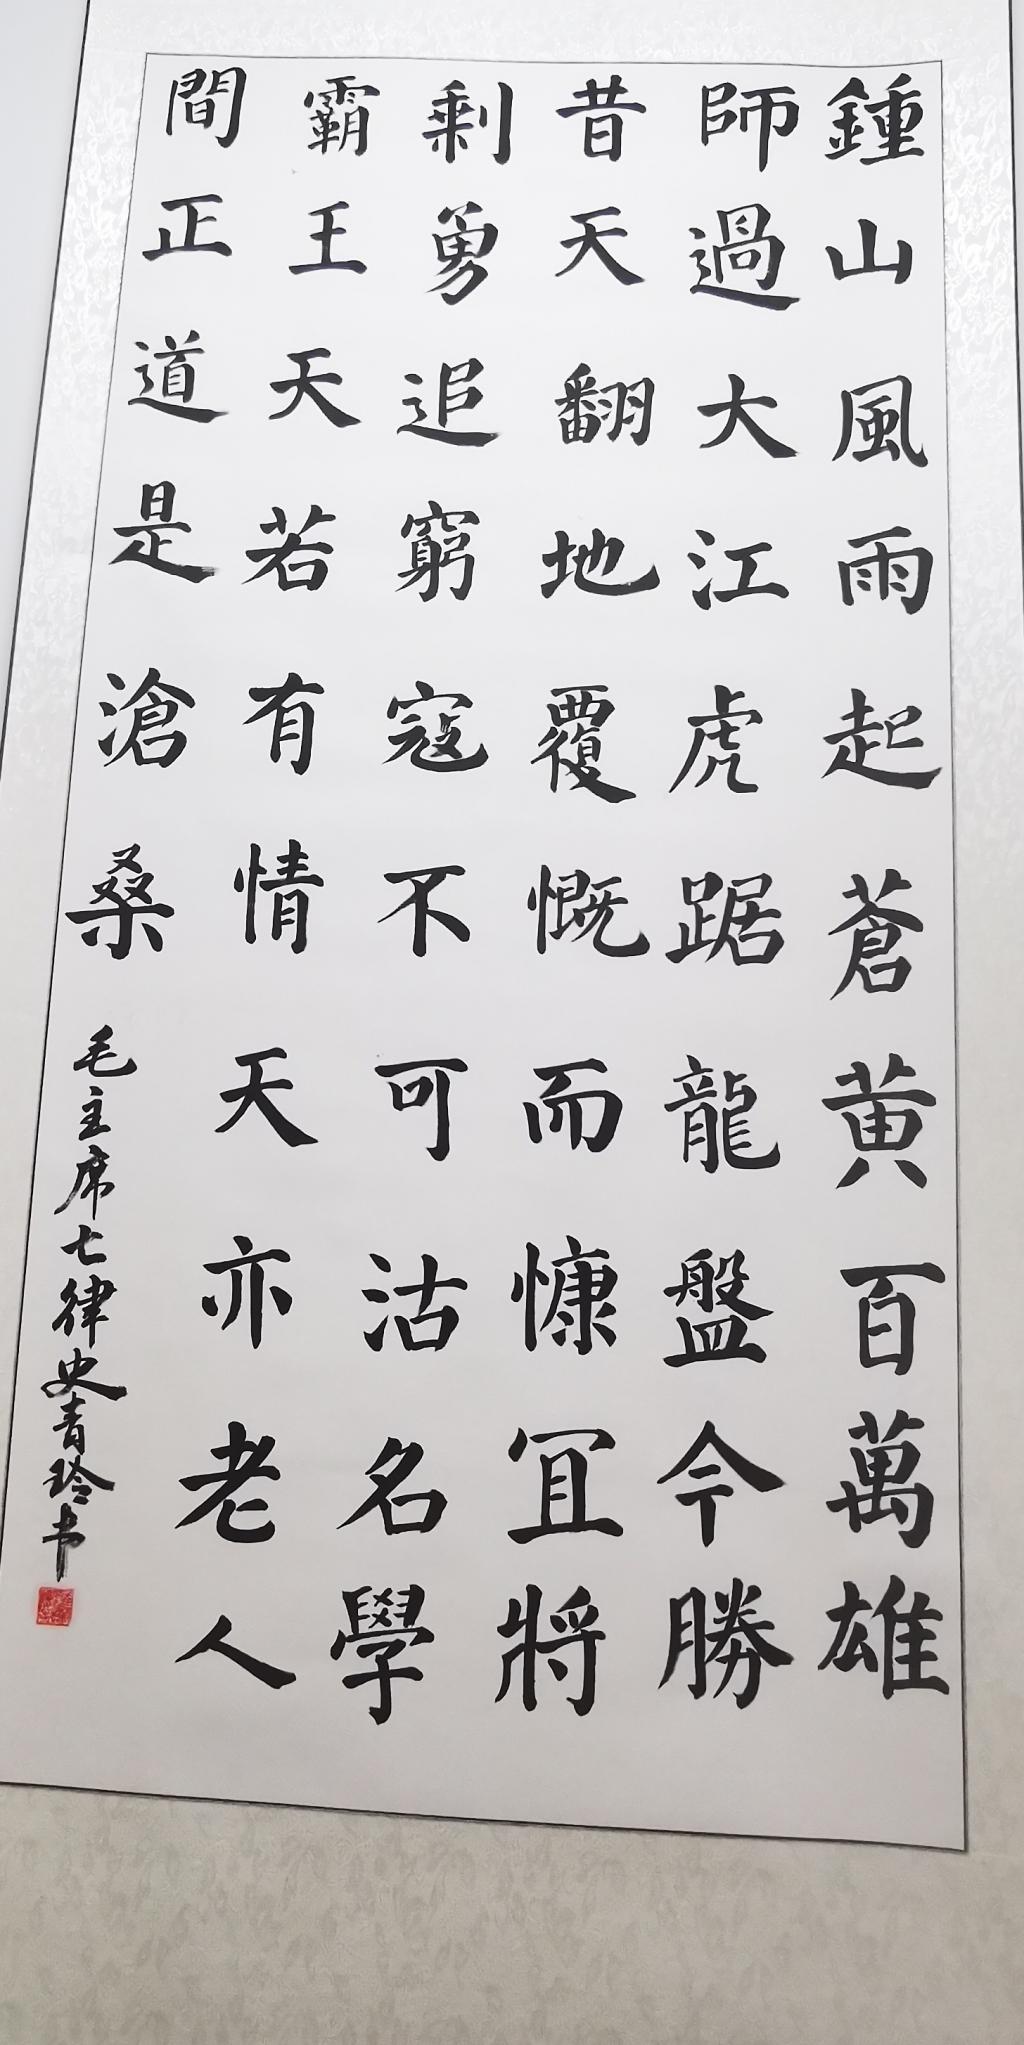 鍾山風雨起蒼黄百萬雄
師過大江虎踞龍盤今勝
昔天翻地覆慨而慷宜將
剩勇追窮寇不可沽名學
霸王天若有情天亦老人
間正道是滄桑
毛主席七律史青玲书